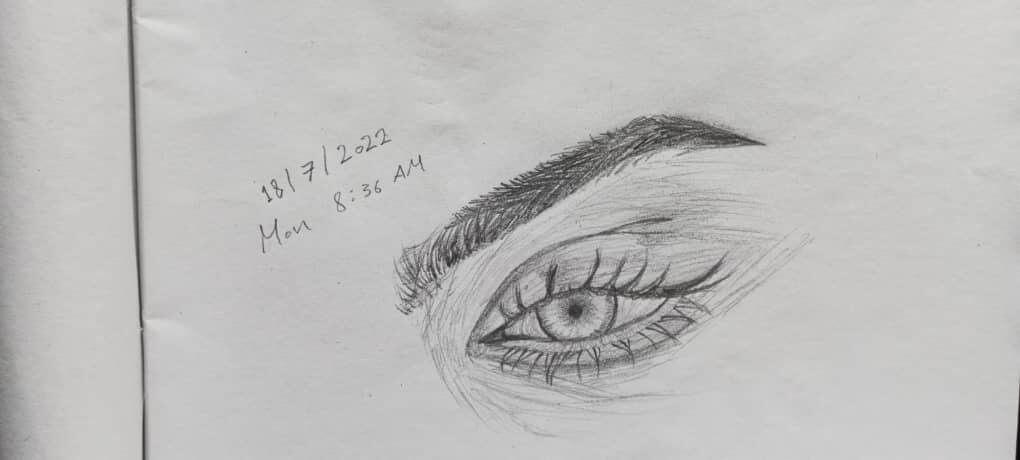 18/7/2022
Mon 8:36 AM